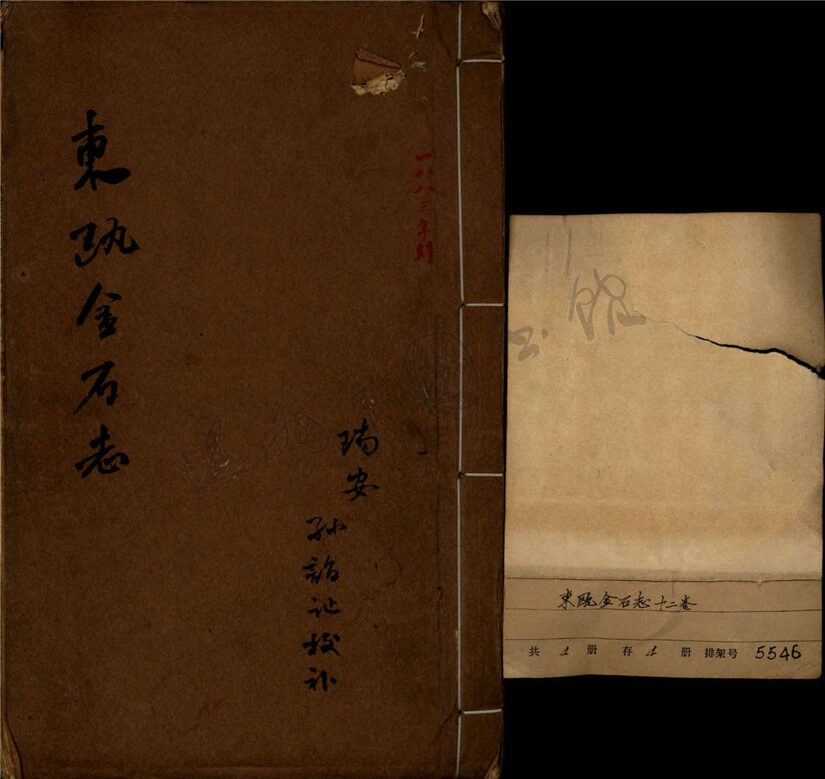 東甌金石志
一八八三年刻
瑞安
孫詒讓校补
東甌金石志十二卷
共 1 册 存 1 册 排架号 5546